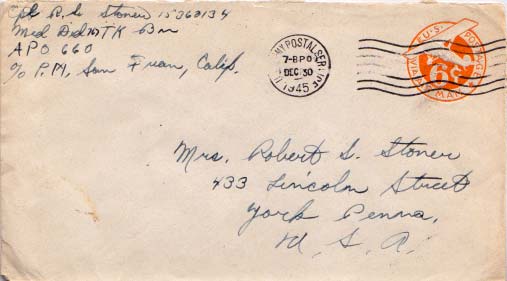 Cpl. R. S. Stoner 15363134
Med Det
APO 660
c/o P.M., San Fran, Calif.
MY POSTAL SERVICE
7-BPO
DEC 30
1945
U.S. POSTAGE
6¢
VIA AIR MAIL
Mrs. Robert S. Stoner
433 Lincoln Street
York Penna.
U. S. A.